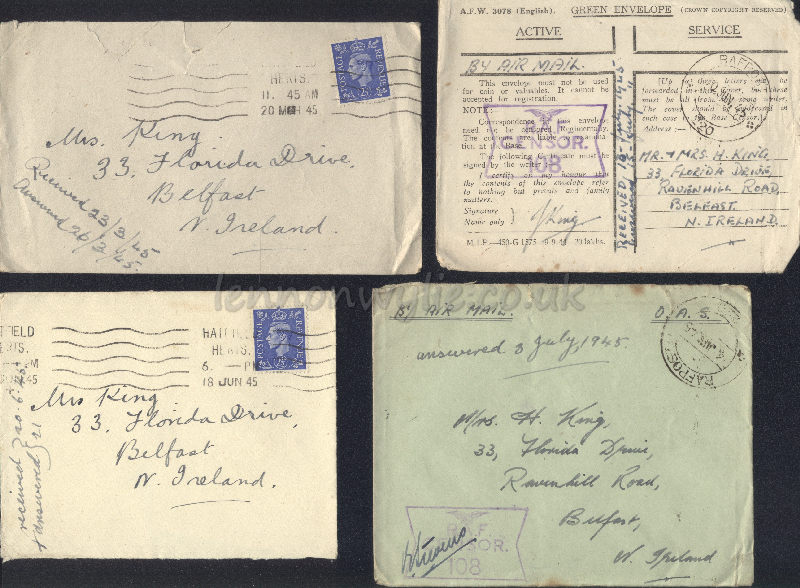 HERTS.
11. 45 AM
20 MCH 45
POSTAGE
REVENUE
Mrs. King.
33. Florida Drive.
Belfast
N. Ireland.
Received 23/3/45
Answered 26/3/45.
A.F.W. 3078 (English). GREEN ENVELOPE (CROWN COPYRIGHT RESERVED)
ACTIVE SERVICE
BY AIR MAIL.
This envelope must not be used
for coin or valuables. It cannot be
accepted for registration.
NOTE:
Correspondence in this envelope
need not be censored Regimentally.
The contents are liable to examination
at the Base.
The following certificate must be
signed by the writer:
I certify on my honour that
the contents of this envelope refer
to nothing but private and family
matters.
Signature
Name only
King
M.I.P.
R.A.F.
CENSOR.
108
Address :—
MR. & MRS. H. KING,
33, FLORIDA DRIVE,
RAVENHILL ROAD,
BELFAST.
N. IRELAND.
lennonwylie.co.uk
HATFIELD
HERTS.
6. — PM
18 JUN 45
POSTAGE
REVENUE
Mrs King.
33. Florida Drive,
Belfast
N. Ireland.
received 20.6.45.
& answered 21
BY AIR MAIL. O.A.S.
RAFPOST
answered 3 July, 1945.
Mrs. H. King,
33, Florida Drive,
Ravenhill Road,
Belfast,
N. Ireland
R.A.F.
CENSOR.
108